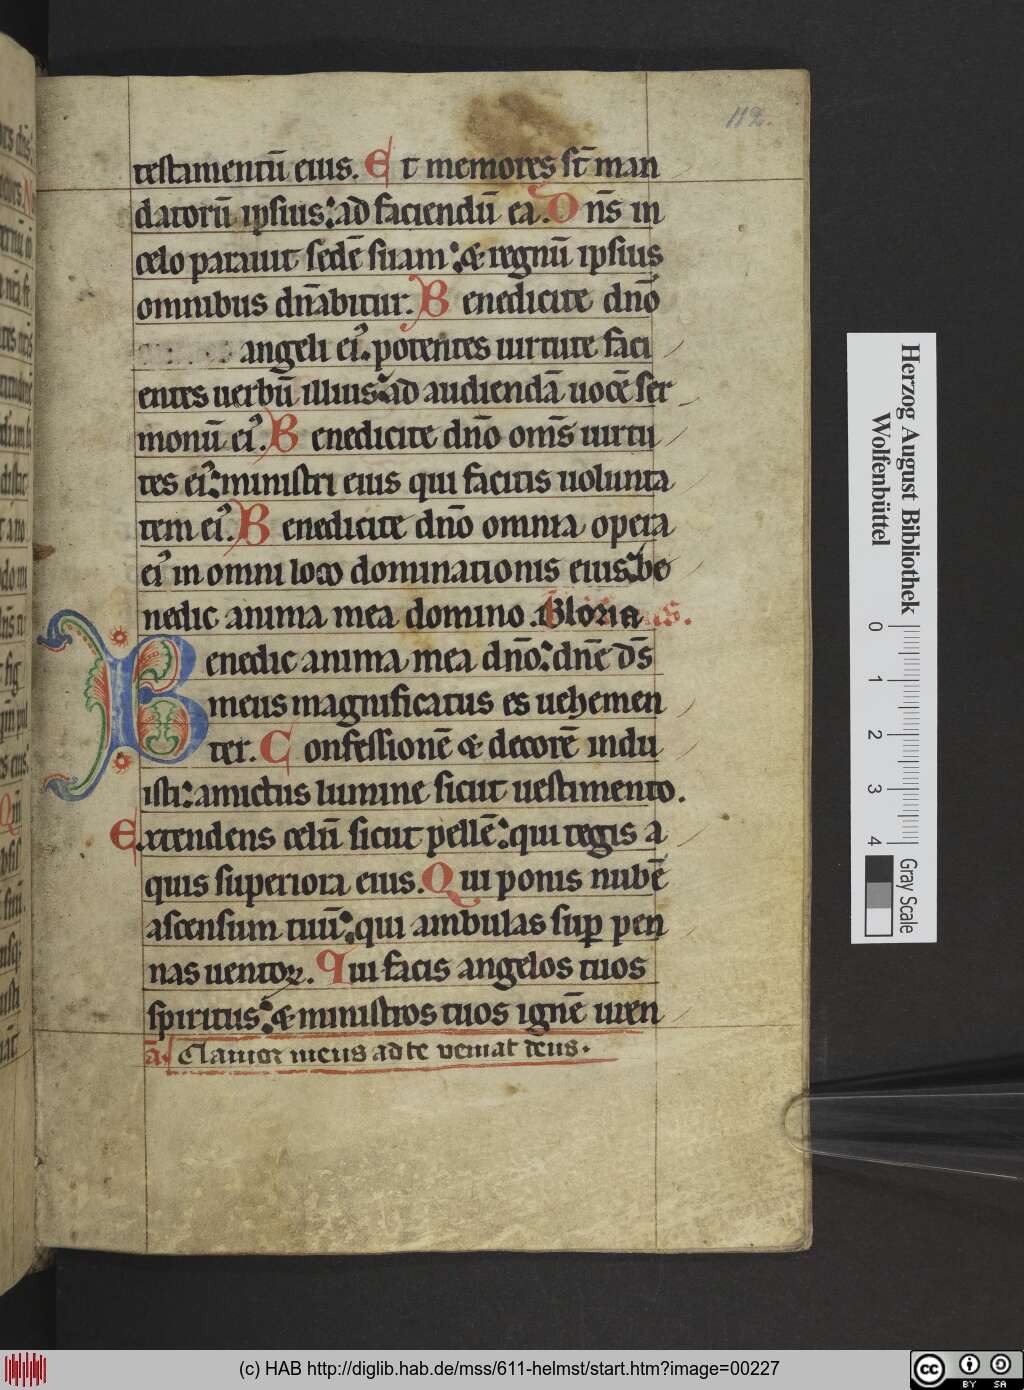 112.
testamentū eius. Et memores st̄ man
datorū ipsius: ad faciendū ea. Dn̄s in
celo parauit sedē suam: & regnū ipsius
omnibus dn̄abitur. Benedicite dn̄o
angeli ei᾿. potentes uirtute faci
entes uerbū illius: ad audiendā uocē ser
monū ei᾿. Benedicite dn̄o om̄s uirtu
tes ei᾿: ministri eius qui facitis uolunta
tem ei᾿. Benedicite dn̄o omnia opera
ei᾿ in omni loco dominationis eius: be
nedic anima mea domino. Gloria
Benedic anima mea dn̄o: dn̄e d̄s
meus magnificatus es uehemen
ter. Confessionē & decorē indu
isti: amictus lumine sicut uestimento.
Extendens celū sicut pellē: qui tegis a
quis superiora eius. Qui ponis nubē
ascensum tuū: qui ambulas sup̄ pen
nas uentoꝝ. Qui facis angelos tuos
spiritus: & ministros tuos ignē uren
a. Clamor meus ad te veniat deus.
Herzog August Bibliothek
Wolfenbüttel
0 1 2 3 4
Gray Scale
(c) HAB http://diglib.hab.de/mss/611-helmst/start.htm?image=00227
cc BY SA